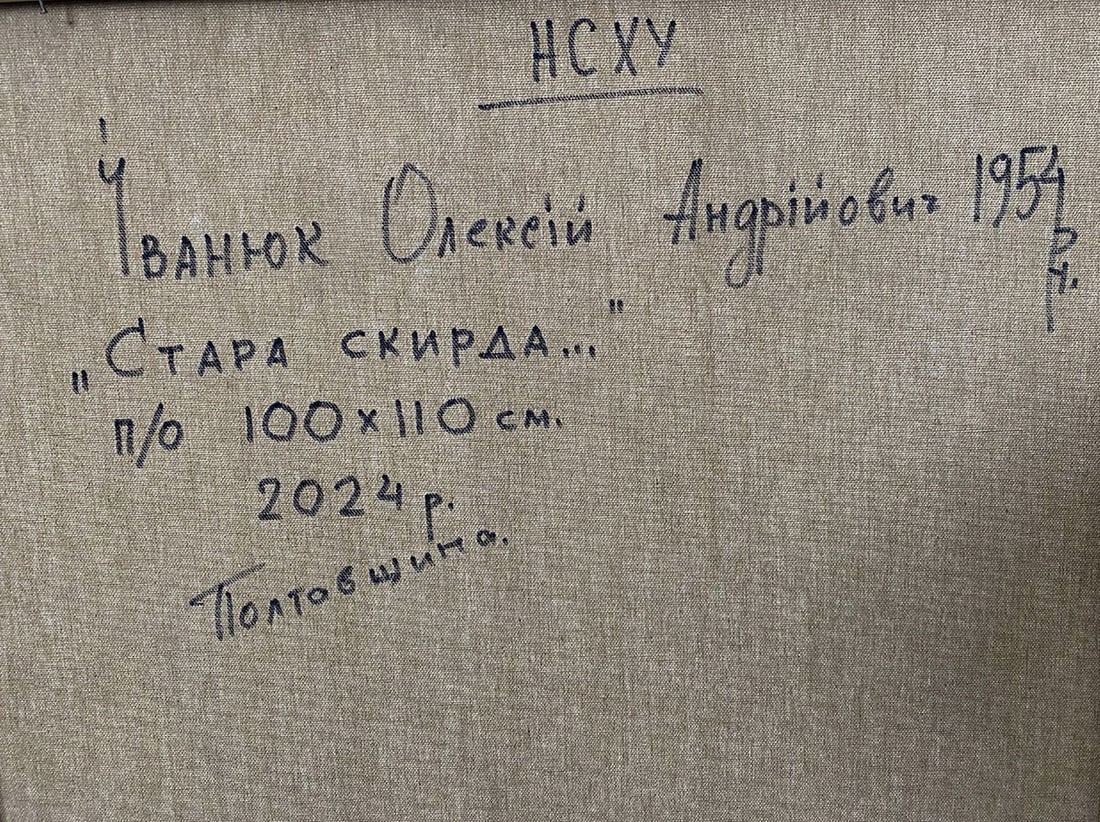 НСХУ
Іванюк Олексій Андрійович 1954
р.
„Стара скирда..."
п/о 100х110 см.
2024 р.
Полтовщина.